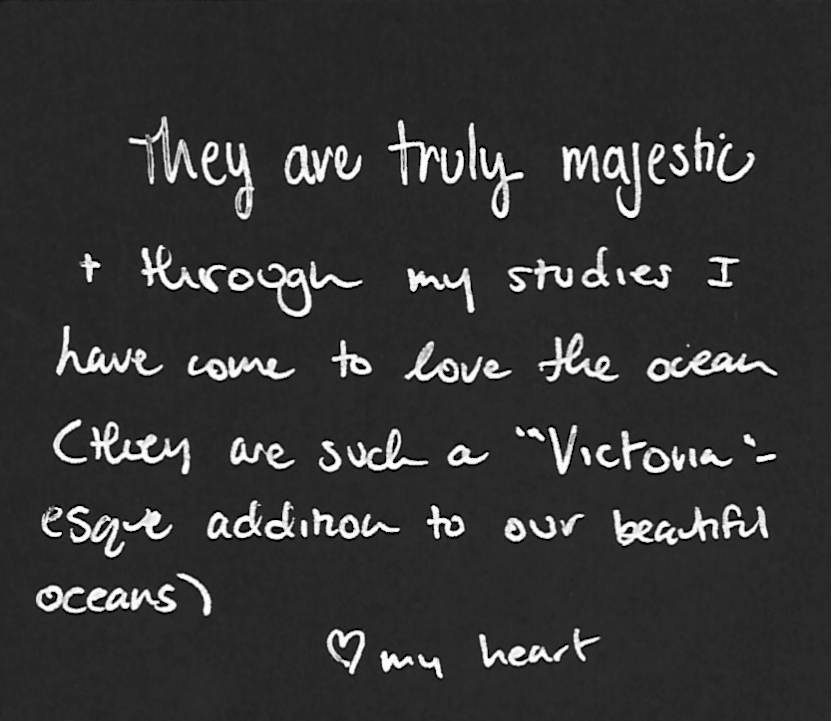 They are truly majestic
+ through my studies I
have come to love the ocean
(they are such a "Victoria"-
esque addition to our beautiful
oceans)
♡ my heart